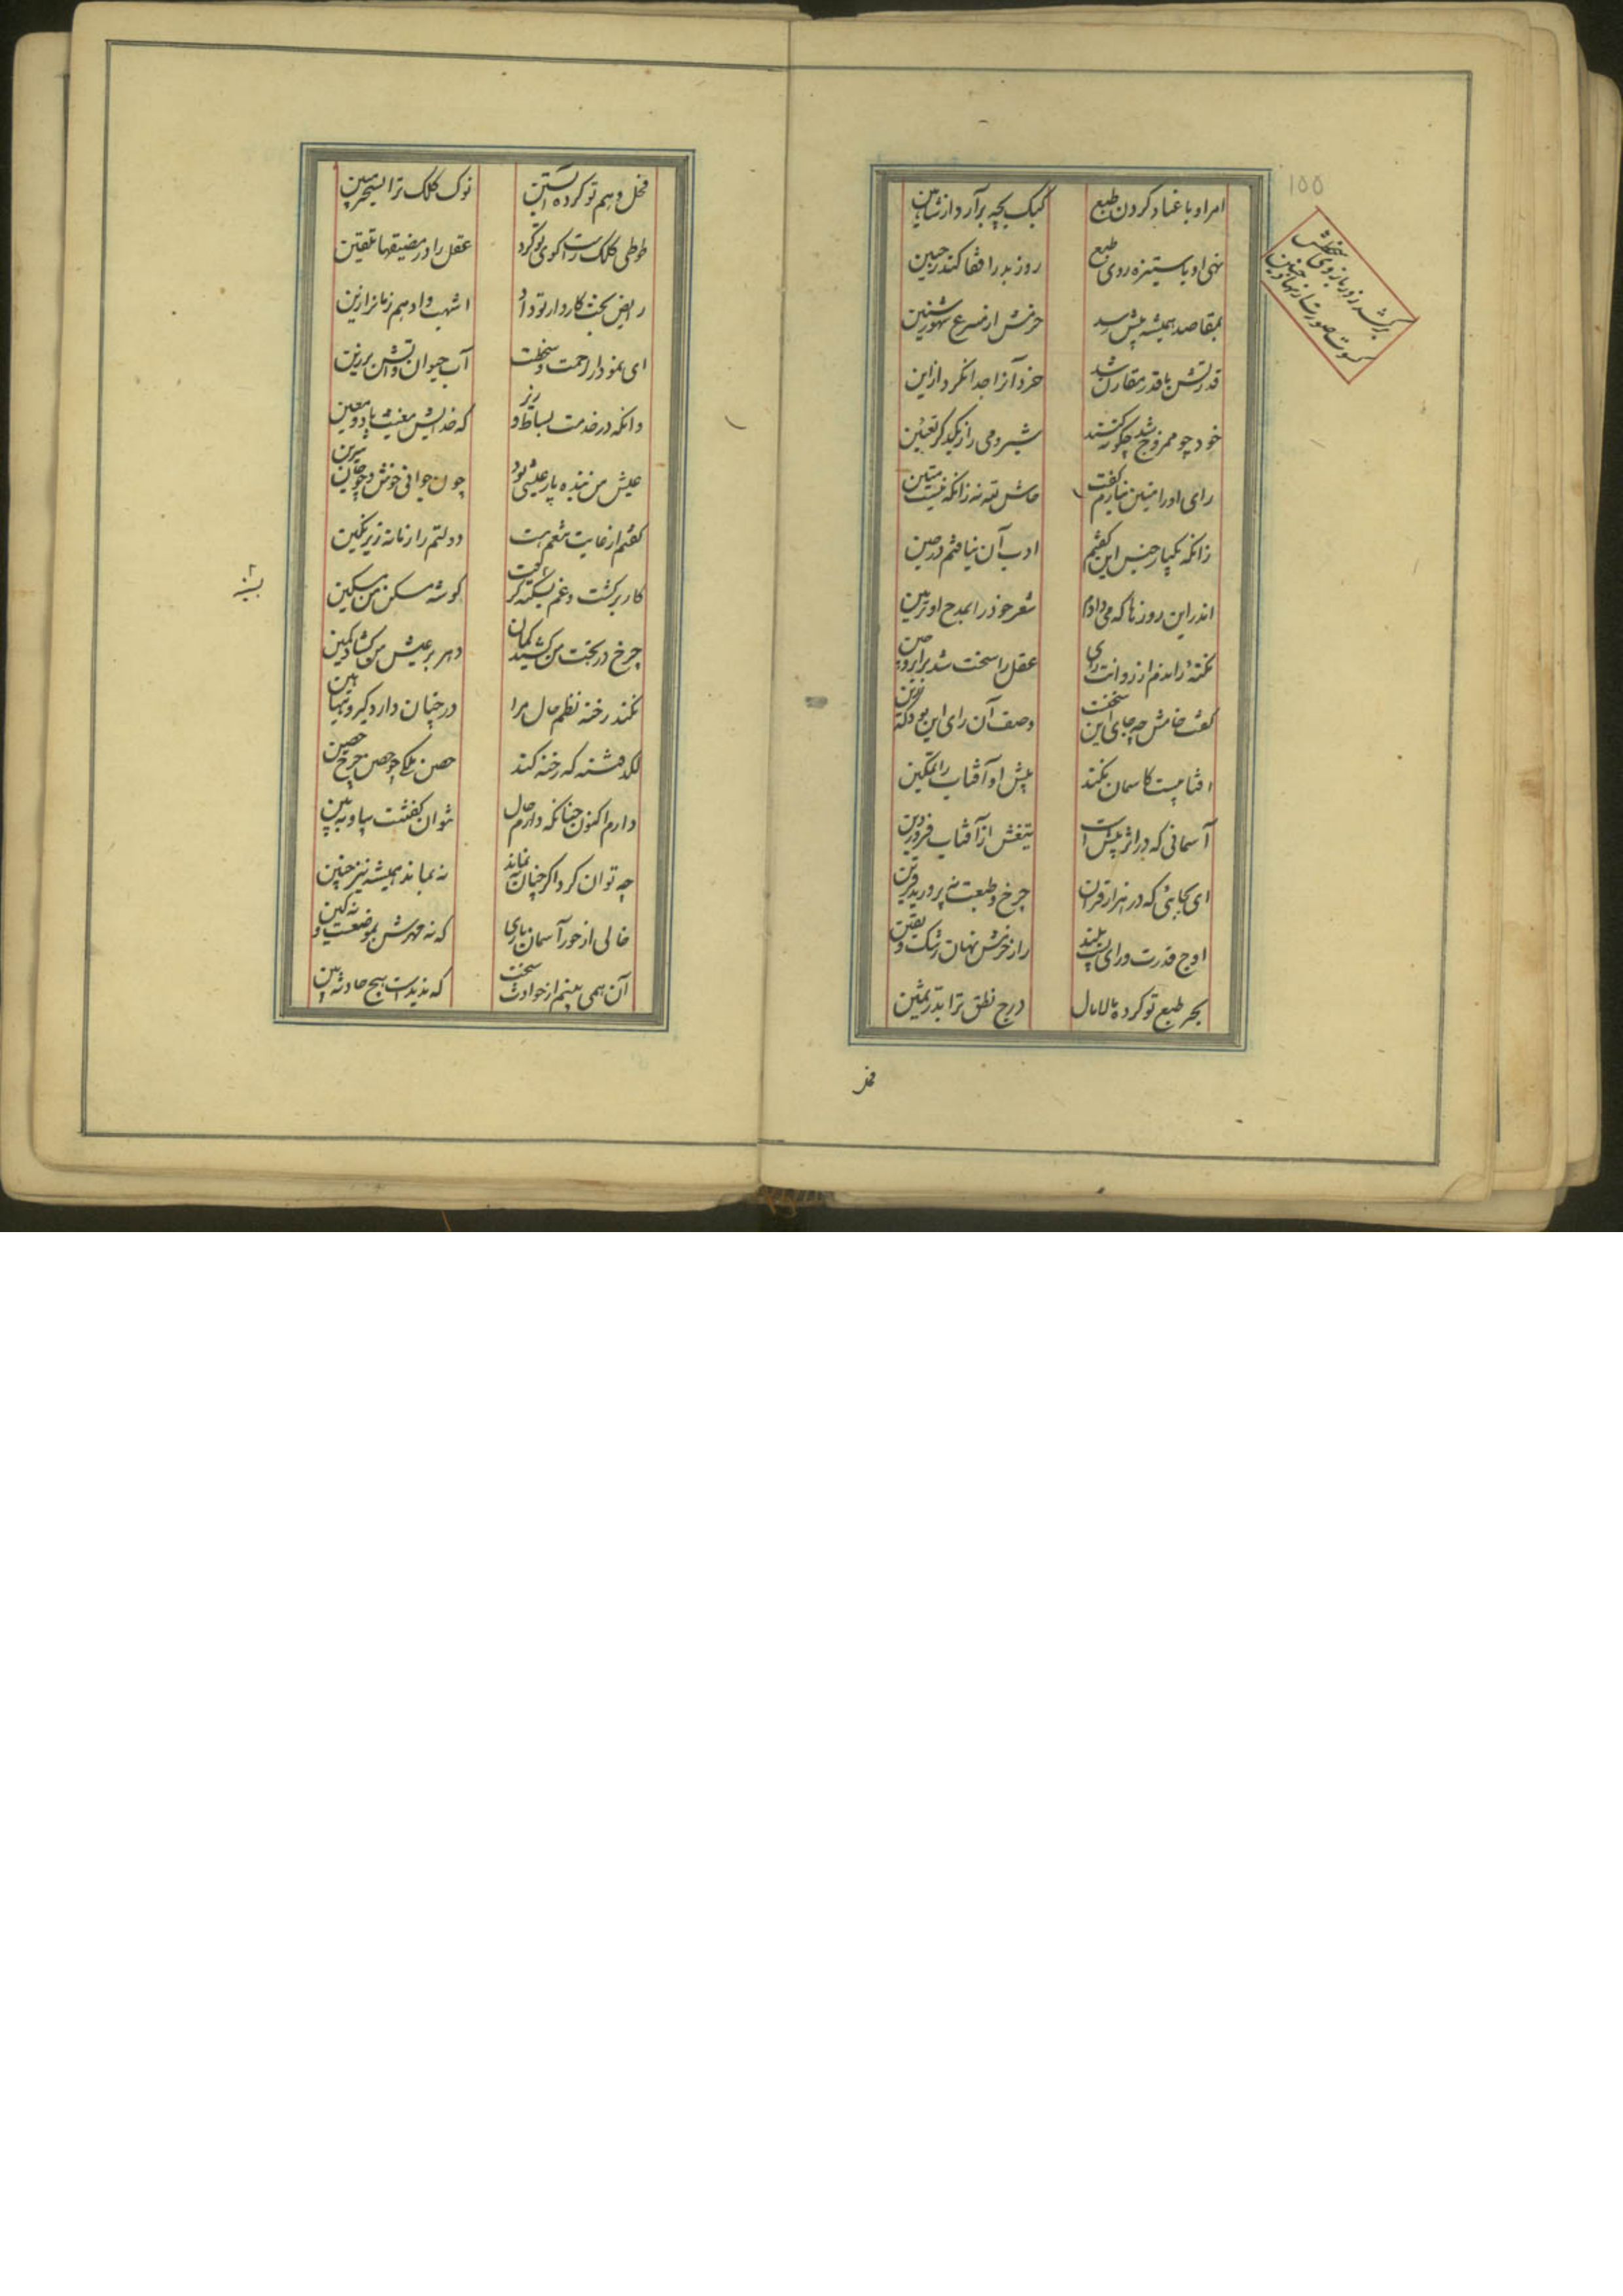 ۱۵۵
امر او با عناد کردن طبع
کبک بچه برآرد از شاهین
نهی او با ستیزه روی طبع
روز بد را قفا کند ز جبین
بمقاصد همیشه پیش رسد
عزمش از مسرع شهور سنین
قدرتش با قدر مقارن شد
خرد آنرا جدا نکرد از این
خود چو ممزوج شد چگونه کنند
شیر و می را ز یکدگر تعیین
رای او را متین نیارم گفت
حاش لله نه زانکه نیست متین
زانکه یکبار جنس این گفتم
ادب آن نیافتم در حین
اندر این روزها که می دادم
شعر خود را بمدح او تزیین
نکته راندم از رزانت رای
عقل را سخت شد برابرو چین
گفت خامش چه جای این سخنست
وصف آن رای این بود که رزین
آفتابیست کاسمان نکند
پیش او آفتاب را تمکین
آسمانی که در اثر پیش است
تیغش از آفتاب فروردین
ای بجائی که در هزار قران
چرخ و طبعت نپرورید قرین
اوج قدرت ورای پست و بلند
راز خرمش نهان ز شک و یقین
بحر طبع تو کرده مالامال
درج نطق ترا بدر ثمین
فحل وهم تو کرده آبستن
نوک کلک ترا بسحر مبین
طوطی کلک راست گوی تو کرد
عقل را در مضیقها تلقین
رایض بخت کاردار تو داد
اشهب و ادهم زمانرا زین
ای نمودار رحمت و سخطت
آب حیوان و آتش برزین
وانکه در خدمت بساط و
که خدایش مغیث باد و معین
عیش من بنده پار عیشی بود
چون جوانی خوش و چو جان شیرین
گفتم از غایت تنعم هست
دولتم را زمانه زیر نگین
کار برگشت و غم بسکنه گرفت
گوشه مسکن من مسکین
چرخ در بخت من کشید کمان
دهر بر عیش من گشاد کمین
نکند رخنه نظم حال مرا
در چنان دار و گیر و
لگد فتنه که رخنه کند
حصن ملکی چو حصن چرخ حصین
دارم اکنون چنانکه دارم حال
نتوان گفتنت بیا و ببین
چه توان کرد اگر چنان بنماند
نه بماند همیشه نیز چنین
خالی از جور آسمان بادی
که نه مهرش بموضعست و نه کین
آن همی بینم از حوادث سخت
که ندیدست هیچ حادثه بین